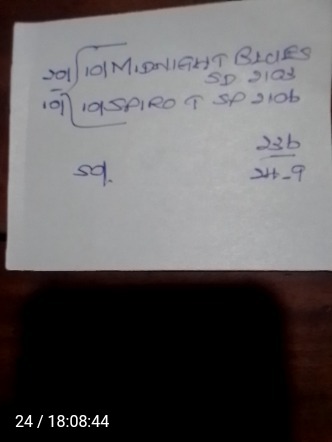 20/ 10/ MIDNIGHT BLUES
SD 2103
10/ 10/ SPIRO T SP 2106
236
50/. 24-9
24 / 18:08:44